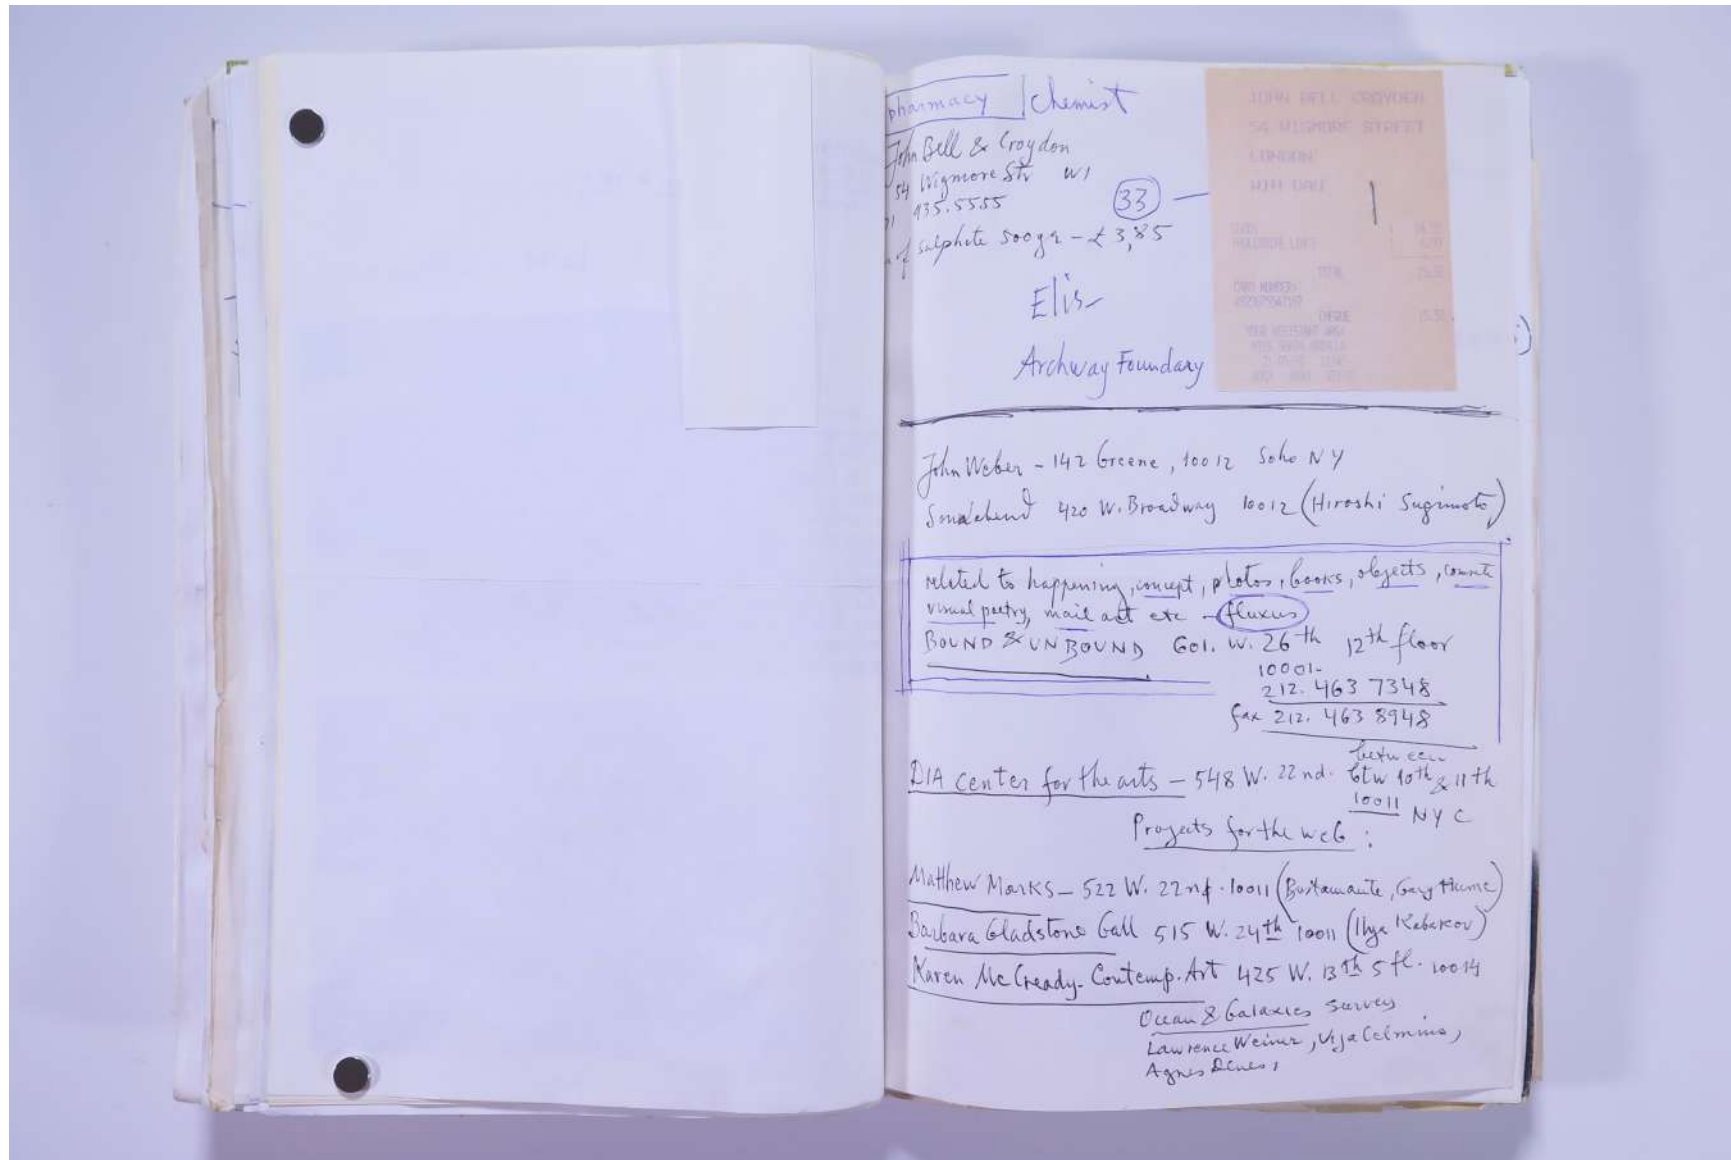 pharmacy | Chemist
John Bell & Croydon
54 Wigmore Str W1
935.5555
of sulphite 500gr - £3,85
33
JOHN BELL CROYDEN
54 WIGMORE STREET
LONDON
TOTAL
CARD NUMBER
CHEQUE
Elis
Archway Foundary
John Weber - 142 Greene, 10012 Soho NY
420 W. Broadway 10012 (Hiroshi Sugimoto)
related to happening, concept, photos, books, objects, concrete
visual poetry, mail art etc - fluxus
BOUND & UNBOUND 601. W. 26th 12th floor
10001-
212. 463 7348
fax 212. 463 8948
between
DIA center for the arts - 548 W. 22nd. btw 10th & 11th
10011 NYC
Projects for the web:
Matthew Marks - 522 W. 22nd. 10011 (Bustamante, Gary Hume)
Barbara Gladstone Gall 515 W. 24th 10011 (Ilya Kabakov)
Karen McCready - Contemp. Art 425 W. 13th 5 fl. 10014
Ocean & Galaxies Survey
Lawrence Weiner, Vija Celmins,
Agnes Denes,